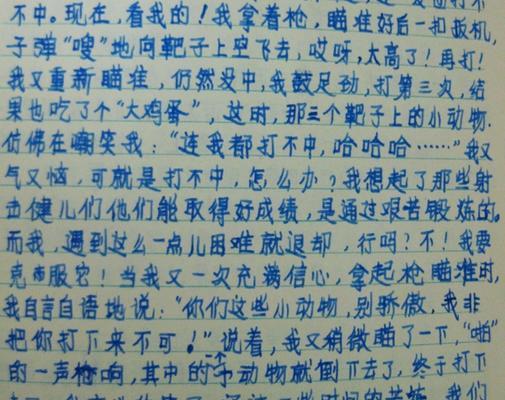 不中。现在，看我的！我拿着枪，瞄准好后一扣扳机，
子弹“嗖”地向靶子上空飞去，哎呀，太高了！再打！
我又重新瞄准，仍然没中，我鼓足劲，打第三次，结
果也吃了个“大鸡蛋”，这时，那三个靶子上的小动物
仿佛在嘲笑我：“连我都打不中，哈哈哈……”我又
气又恼，可就是打不中，怎么办？我想起了那些射
击健儿们他们能取得好成绩，是通过艰苦锻炼的。
而我，遇到这么一点儿困难就退却，行吗？不！我要
克服它！当我又一次充满信心，拿起枪瞄准时，
我自言自语地说：“你们这些小动物，别骄傲，我非
把你打下来不可！”说着，我又稍微瞄了一下，“啪”
的一声枪响，其中的一个小动物就倒下去了，终于打下